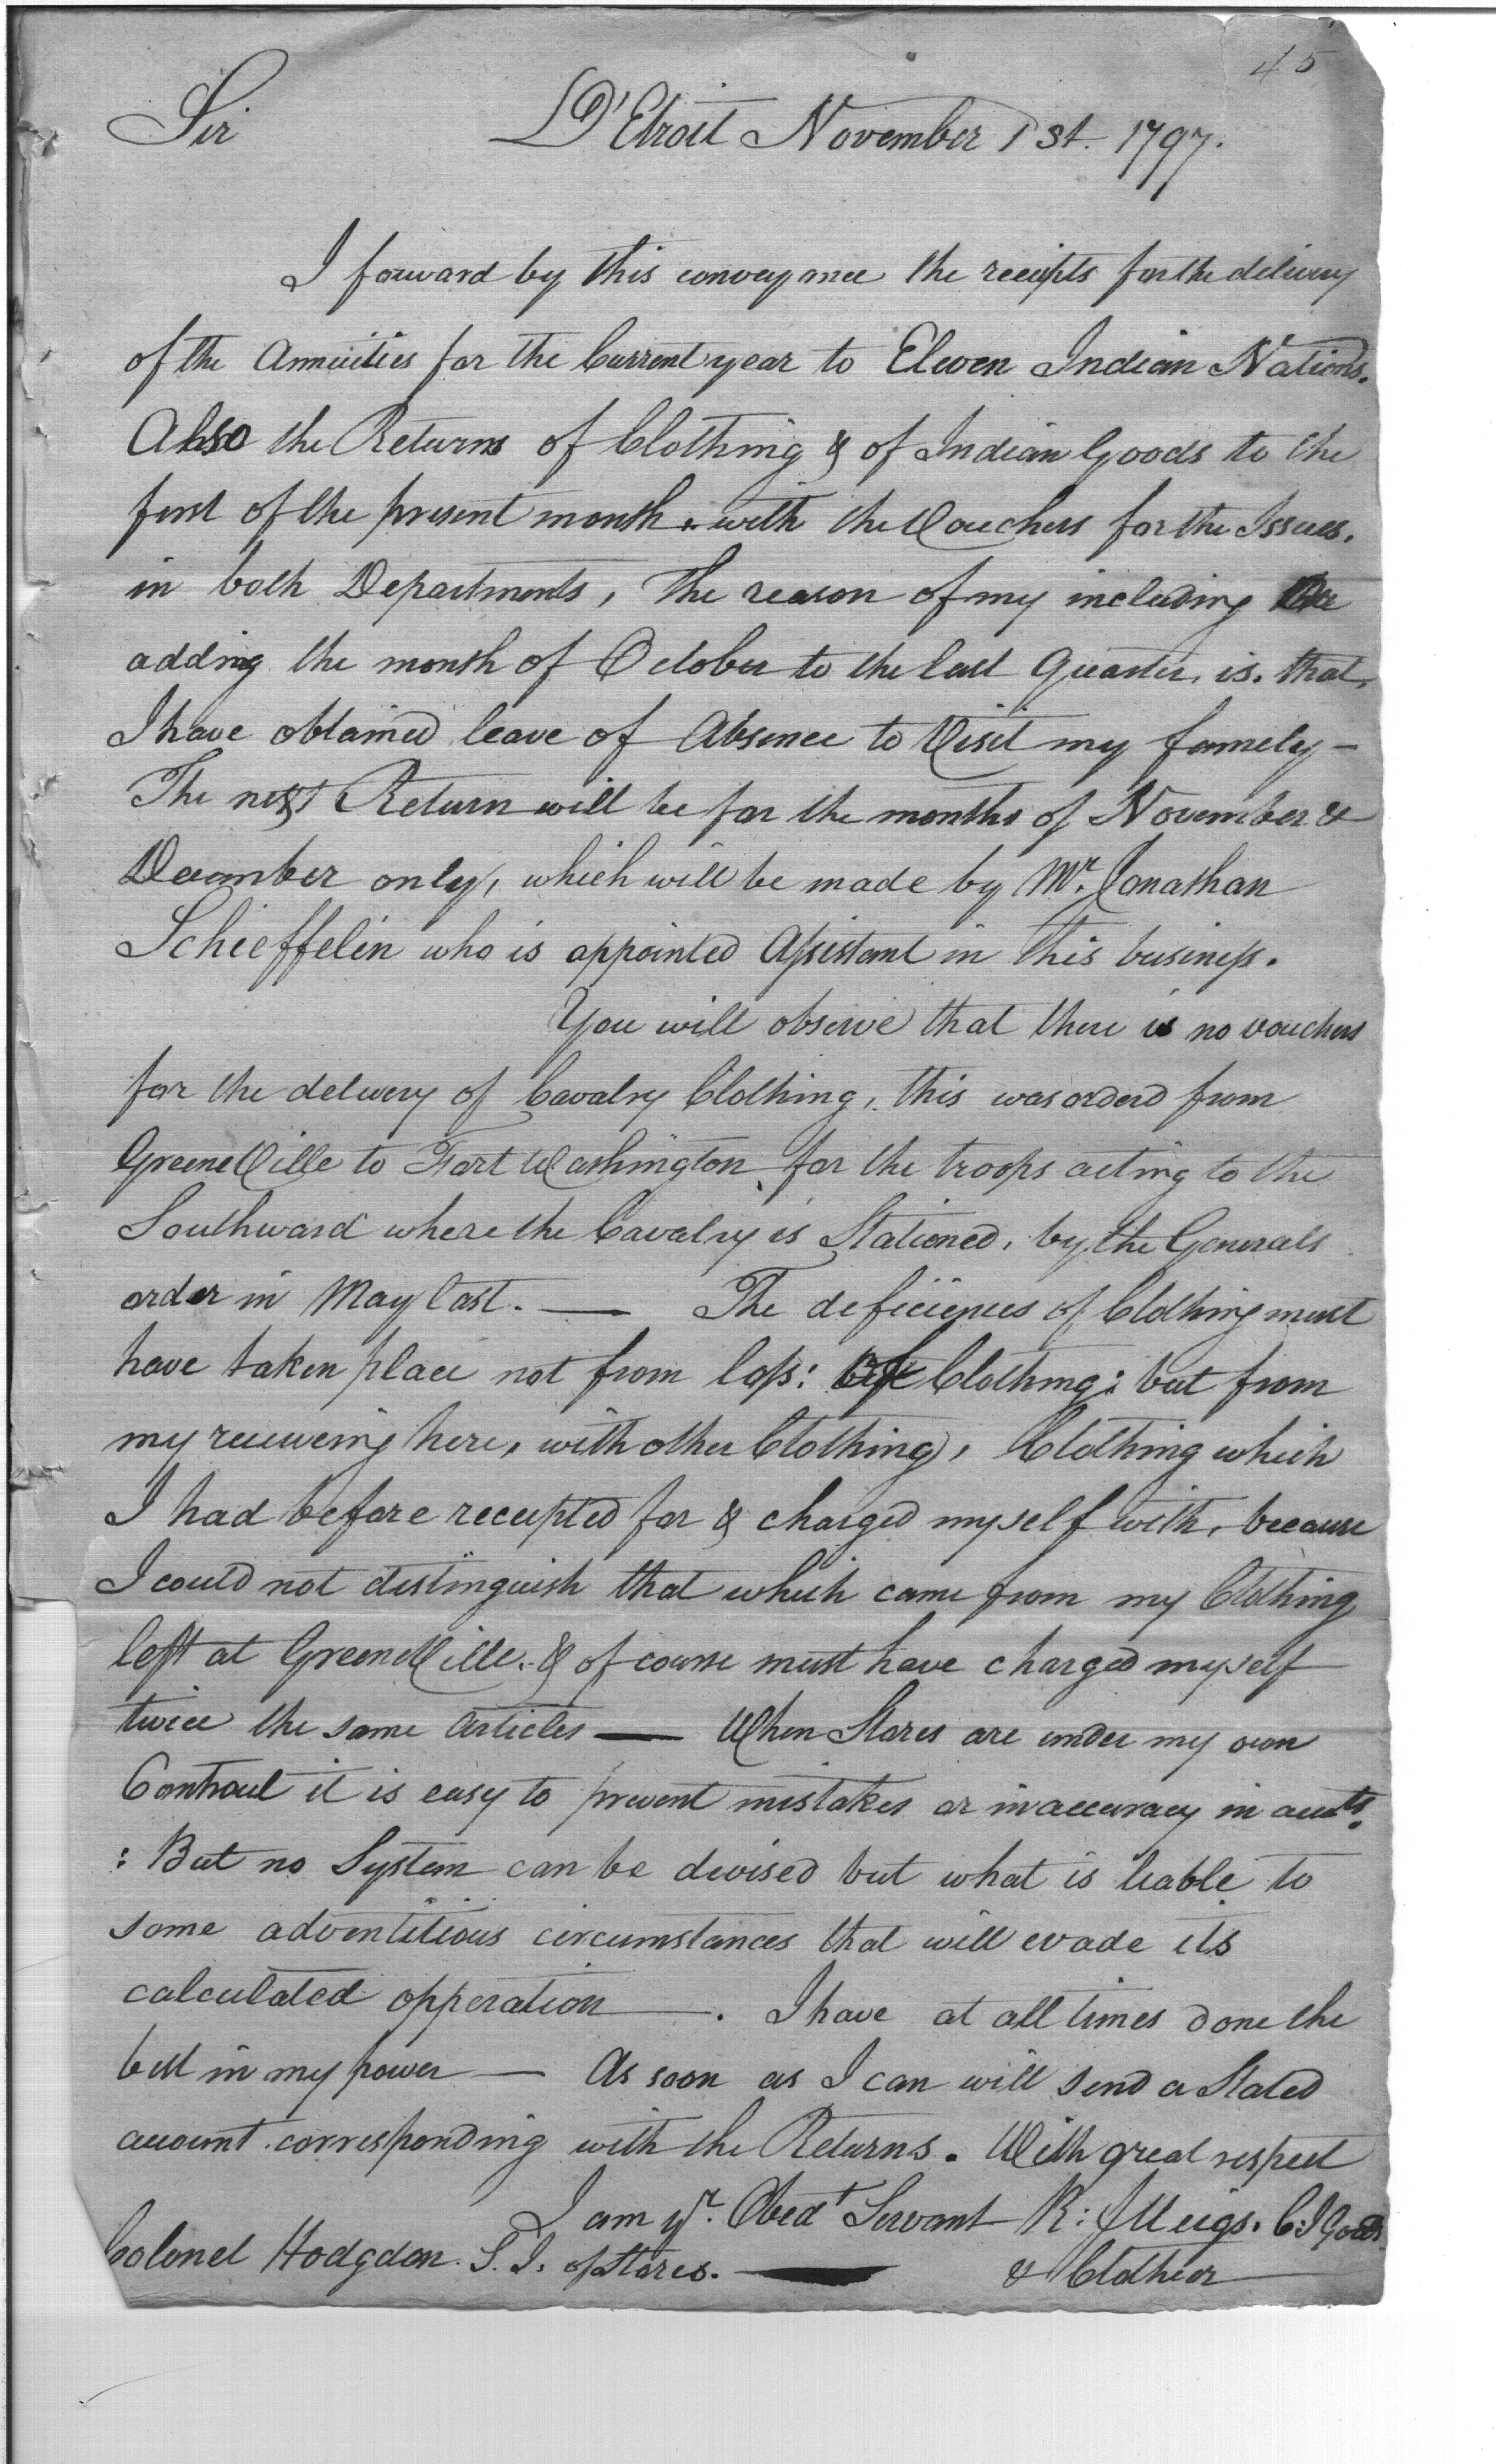 45
Sir D'Etroit November 1st. 1797.
I forward by this conveyance the receipts for the delivery
of the Annuities for the Current year to Eleven Indian Nations.
Also the Returns of Clothing & of Indian Goods to the
first of the present month. with the Vouchers for the Issues.
in both Departments, The reason of my including
adding the month of October to the last Quarter, is. that,
I have obtained leave of Absence to Visit my famely -
The next Return will be for the months of November &
December only, which will be made by Mr. Jonathan
Schieffelin who is appointed Assistant in this business.
You will observe that there is no vouchers
for the delivery of Cavalry Clothing, this was orderd from
GreeneVille to Fort Washington for the troops acting to the
Southward where the Cavalry is Stationed, by the Generals
order in May last. — The deficiences of Clothing must
have taken place not from loss: of Clothing: but from
my receiving here, with other Clothing, Clothing which
I had before receipted for & charged myself with, because
I could not distinguish that which came from my Clothing
left at GreeneVille. & of course must have charged myself
twice the same Articles — When Stores are under my own
Controul it is easy to prevent mistakes or inaccuracy in accts.
: But no System can be devised but what is liable to
some adventitious circumstances that will evade its
calculated opperation —. I have at all times done the
best in my power — As soon as I can will send a Stated
account corresponding with the Returns. With great respect
I am yr. Obedt Servant R: J Meigs. C: I Goods
Colonel Hodgdon. S. I. of Stores. — & Clothier